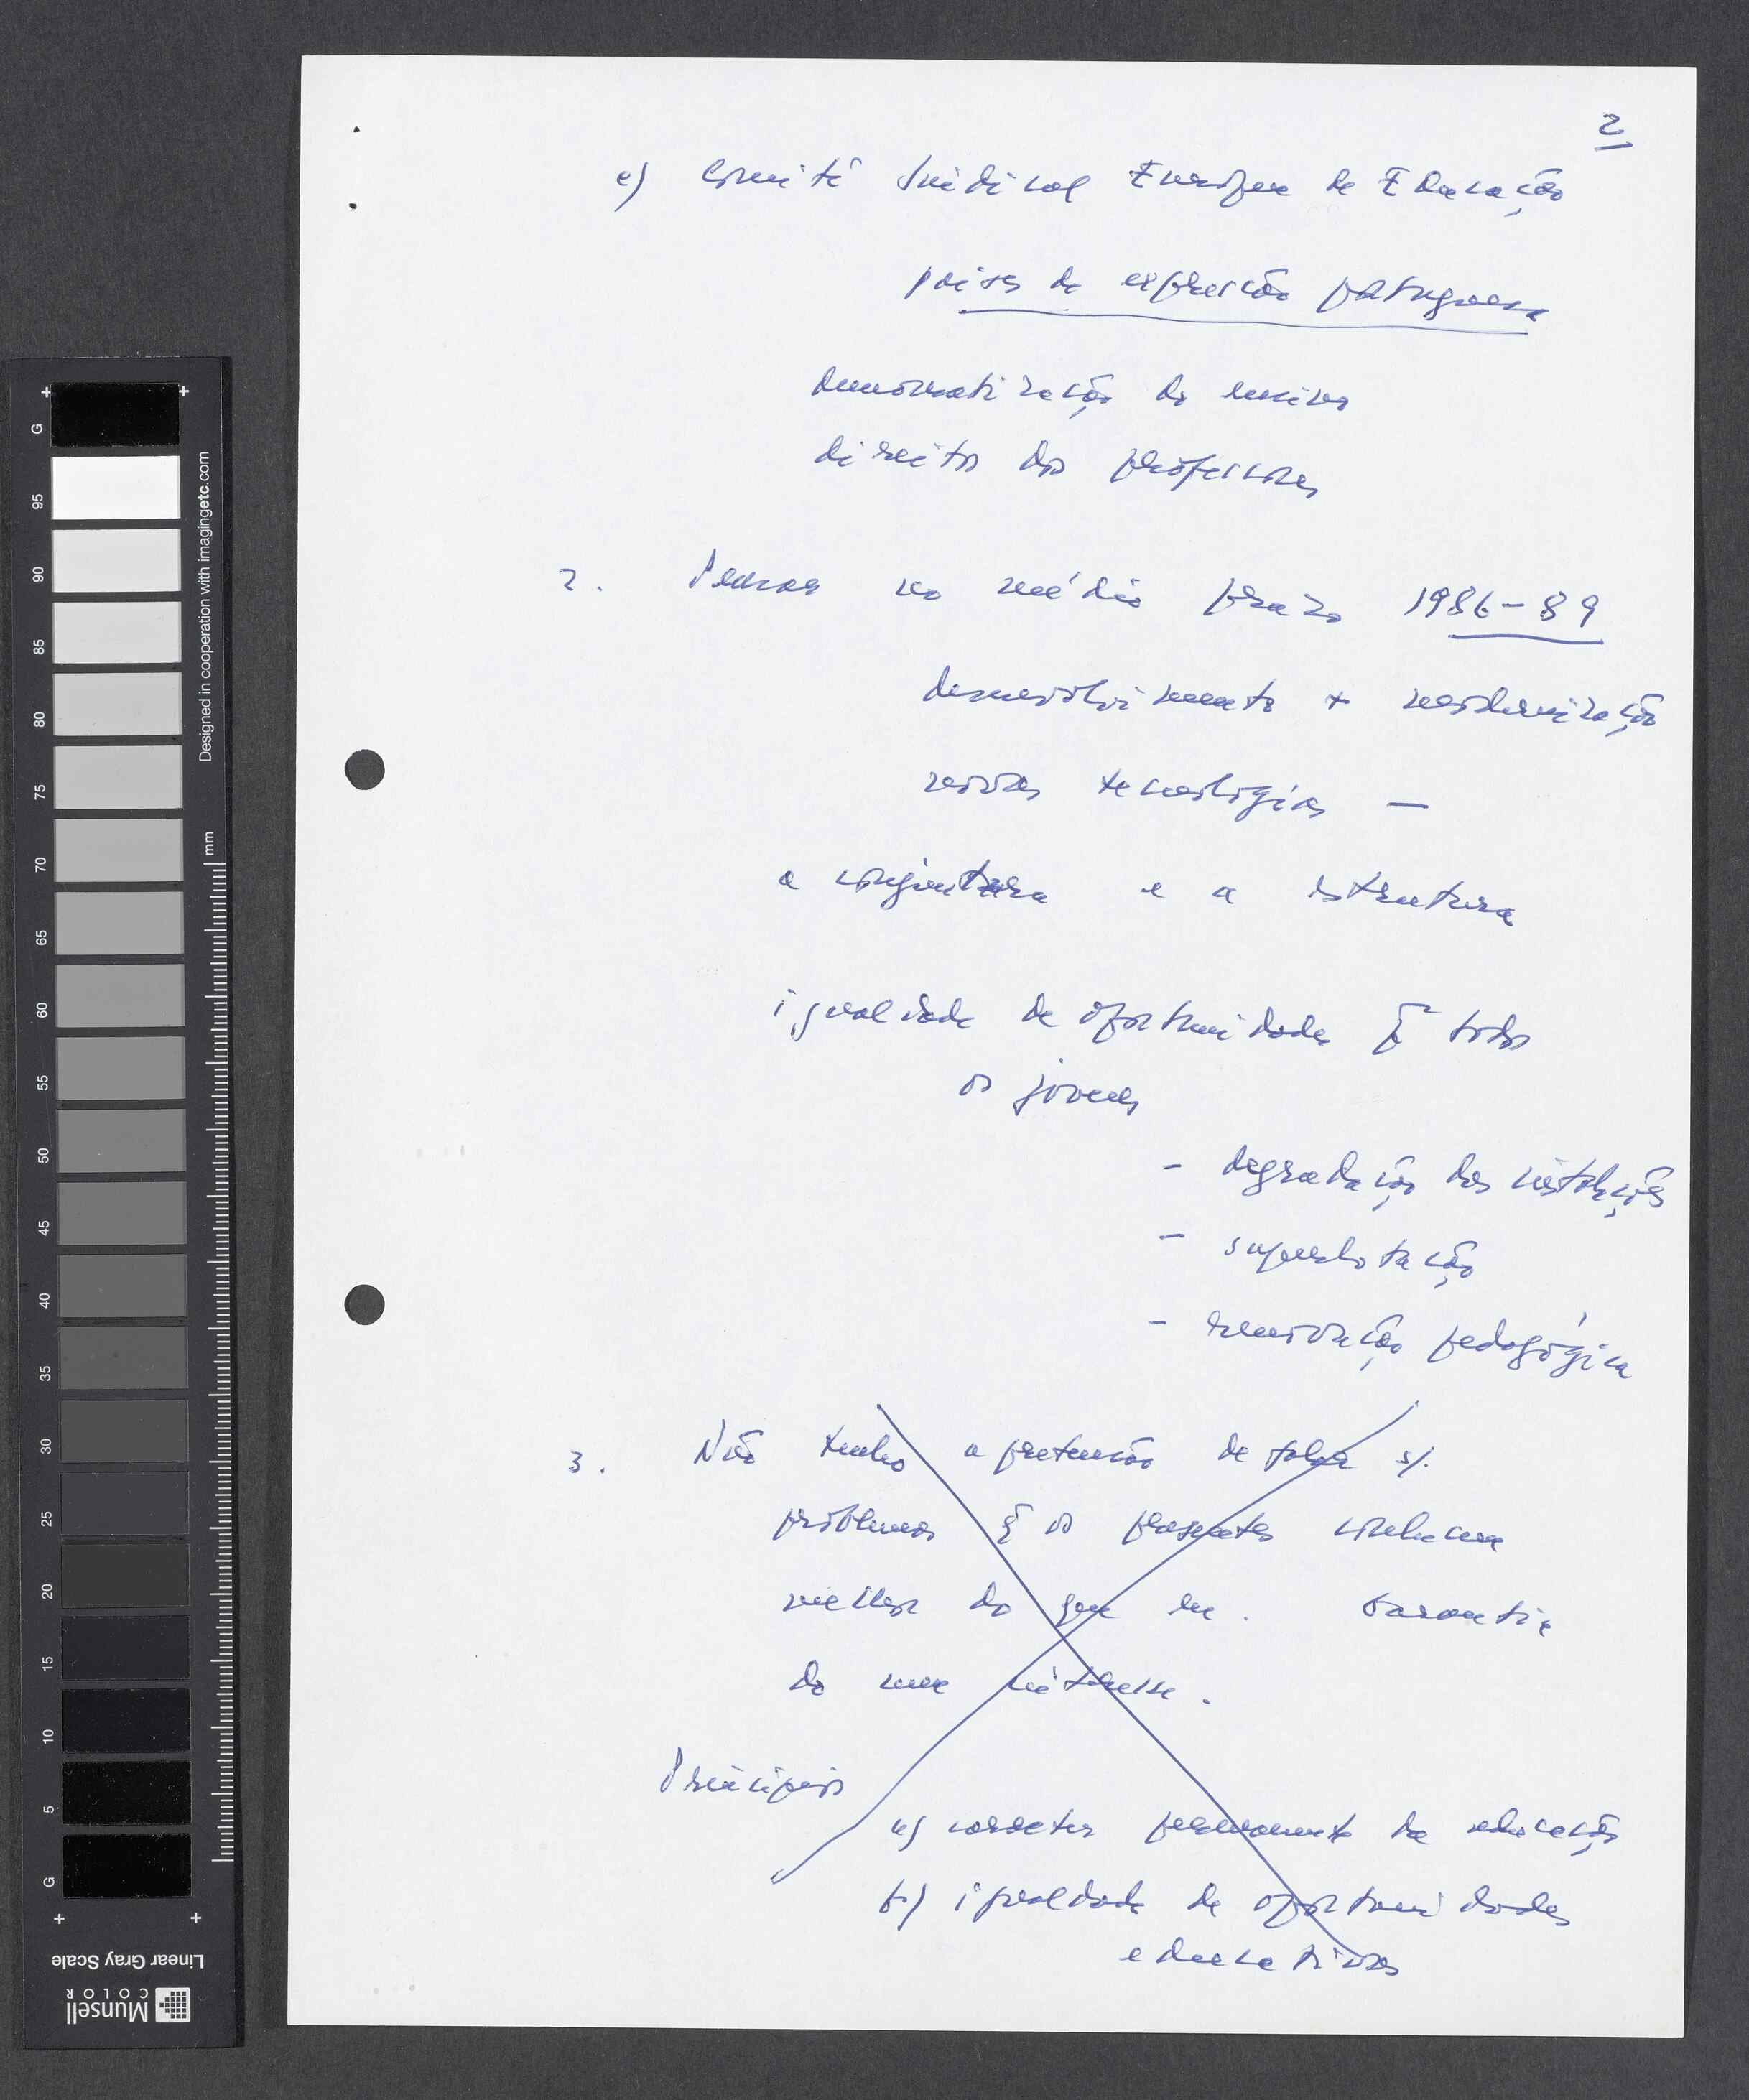 2
e) Comité Sindical Europeu de Educação
países de expressão portuguesa
democratização do ensino
direitos dos professores
2. Pensar no médio prazo 1986-89
desenvolvimento + modernização
novas tecnologias —
a conjuntura e a estrutura
igualdade de oportunidades p^a todos
os jovens
- degradação das instalações
- superlotação
- renovação pedagógica
3. Não tenho a pretensão de falar s/.
problemas q̃ os presentes conhecem
melhor do que eu. Garantia
do meu interesse.
Princípios
a) caracter permanente da educação
b) igualdade de oportunidades
educativas
G
95
90
85
80
75
70
65
60
55
50
45
40
35
30
25
20
15
10
5
G
mm
Designed in cooperation with imagingetc.com
Linear Gray Scale
Munsell
COLOR